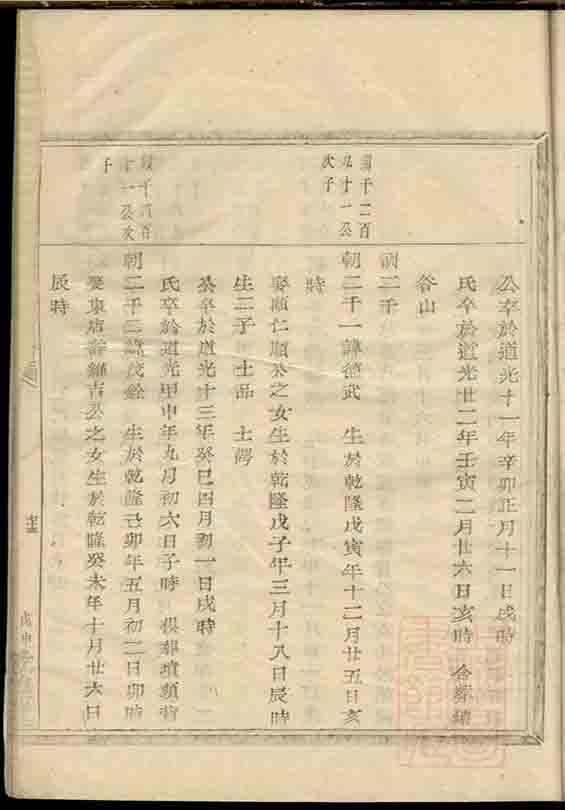 公卒於道光十一年辛卯正月十一日戌時
氏卒於道光廿二年壬寅二月廿六日亥時 合葬
谷山
九十一公
次子
朝二千一諱德武 生於乾隆戊寅年十二月廿五日亥
時
娶順仁順公之女生於乾隆戊子年三月十八日辰時
生二子 士品 士
公卒於道光十三年癸巳四月初一日戌時
氏卒於道光甲申年九月初六日子時
十一公次
子
朝二千三諱茂銓 生於乾隆己卯年五月初二日卯時
娶東店 吉公之女生於乾隆癸未年十月廿六日
辰時